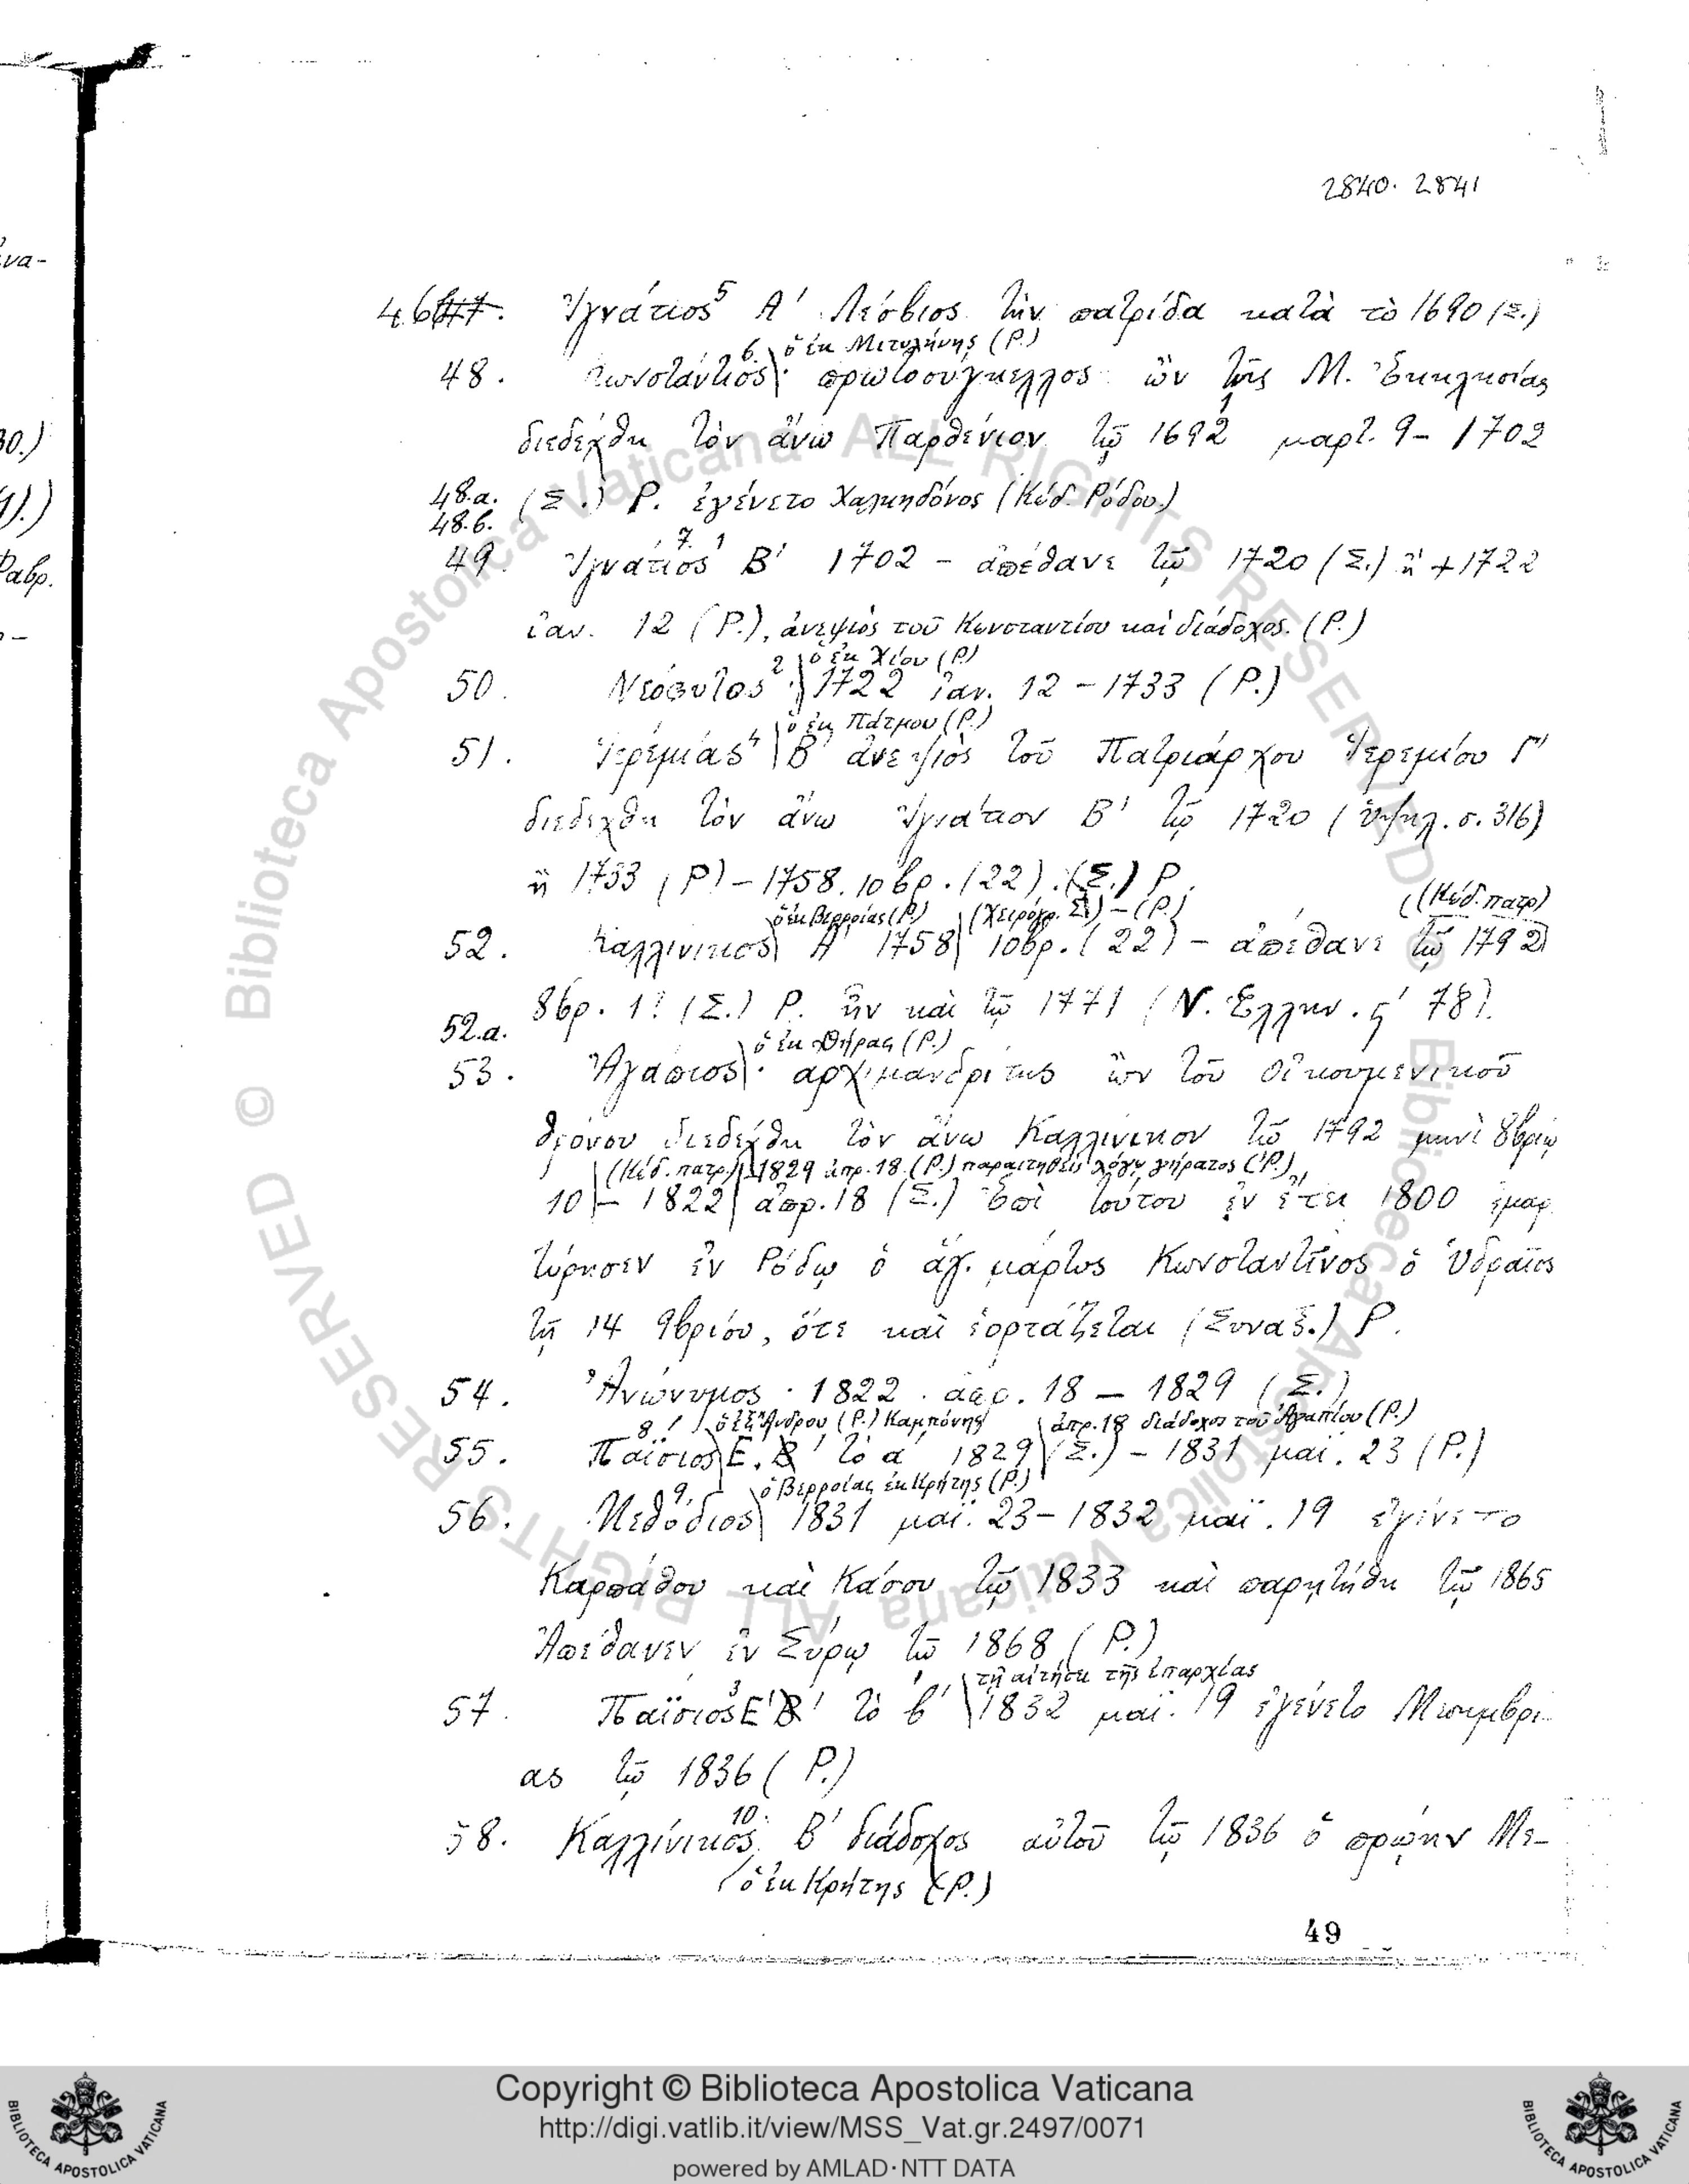 2840. 2841
46. Ἰγνάτιος⁵ Α΄ Λέσβιος τὴν πατρίδα κατὰ τὸ 1690 (Σ.)
ὁ ἐκ Μιτυλήνης (Ρ.)
48. Κωνστάντιος⁶· πρωτοσύγκελλος ὢν τῆς Μ. Ἐκκλησίας
διεδέχθη τὸν ἄνω Παρθένιον τῷ 1692 μαρτ. 9 – 1702
48.α. (Σ.) Ρ. ἐγένετο Χαλκηδόνος (Κώδ. Ρόδου)
48.β.
49. Ἰγνάτιος⁷ Β΄ 1702 – ἀπέθανε τῷ 1720 (Σ.) ἢ + 1722
ἰαν. 12 (Ρ.), ἀνεψιὸς τοῦ Κωνσταντίου καὶ διάδοχος. (Ρ.)
ὁ ἐκ Χίου (Ρ.)
50. Νεόφυτος²· 1722 ἰαν. 12 – 1733 (Ρ.)
ὁ ἐκ Πάτμου (Ρ.)
51. Ἱερεμίας⁴ Β΄ ἀνεψιὸς τοῦ Πατριάρχου Ἱερεμίου Γ΄
διεδέχθη τὸν ἄνω Ἰγνάτιον Β΄ τῷ 1720 (ὑψηλ. σ. 316)
ἢ 1733 (Ρ) – 1758. 10βρ. (22). (Σ.) Ρ.
ὁ ἐκ Βερροίας (Ρ.) (Χειρόγρ. Σ.) – (Ρ.) (Κώδ. πατρ)
52. Καλλίνικος Α΄ 1758 10βρ. (22) – ἀπέθανε τῷ 1792
8βρ. 1! (Σ.) Ρ. ἦν καὶ τῷ 1771 (Ν. Ἑλλην. ς΄ 78).
52.α.
ὁ ἐκ Θήρας (Ρ.)
53. Ἀγάπιος· αρχιμανδρίτης ὢν τοῦ οἰκουμενικοῦ
θρόνου διεδέχθη τὸν ἄνω Καλλίνικον τῷ 1792 μηνὶ 8βρίῳ
(Κώδ. πατρ.) 1829 ἀπρ. 18. (Ρ.) παραιτηθεὶς λόγῳ γήρατος (Ρ.)
10 – 1822 ἀπρ. 18 (Σ.) Ἐπὶ τούτου ἐν ἔτει 1800 ἐμαρ
τύρησεν ἐν Ρόδῳ ὁ ἅγ. μάρτυς Κωνσταντῖνος ὁ Ὑδραῖος
τῇ 14 9βρίου, ὅτε καὶ ἑορτάζεται (Συναξ.) Ρ.
54. Ἀνώνυμος· 1822. ἀπρ. 18 – 1829 (Σ.)
ὁ ἐξ Ἄνδρου (Ρ.) Καμπάνης ἀπρ. 18 διάδοχος τοῦ Ἀγαπίου (Ρ.)
55. Παΐσιος⁸ Ε΄. τὸ α΄ 1829 (Σ.) – 1831 μαΐ. 23 (Ρ.)
ὁ Βερροίας ἐκ Κρήτης (Ρ.)
56. Μεθόδιος⁹ 1831 μαΐ. 23 – 1832 μαΐ. 19 ἐγίνετο
Καρπάθου καὶ Κάσου τῷ 1833 καὶ παρῃτήθη τῷ 1865
Ἀπέθανεν ἐν Σύρῳ τῷ 1868 (Ρ.)
τῇ αἰτήσει τῆς ἐπαρχίας
57. Παΐσιος³ Ε΄ τὸ β΄ 1832 μαΐ. 19 ἐγένετο Μεσημβρί
ας τῷ 1836 (Ρ.)
58. Καλλίνικος¹⁰· Β΄ διάδοχος αὐτοῦ τῷ 1836 ὁ πρώην Με-
ὁ ἐκ Κρήτης (Ρ.)
49
Copyright © Biblioteca Apostolica Vaticana
http://digi.vatlib.it/view/MSS_Vat.gr.2497/0071
powered by AMLAD·NTT DATA